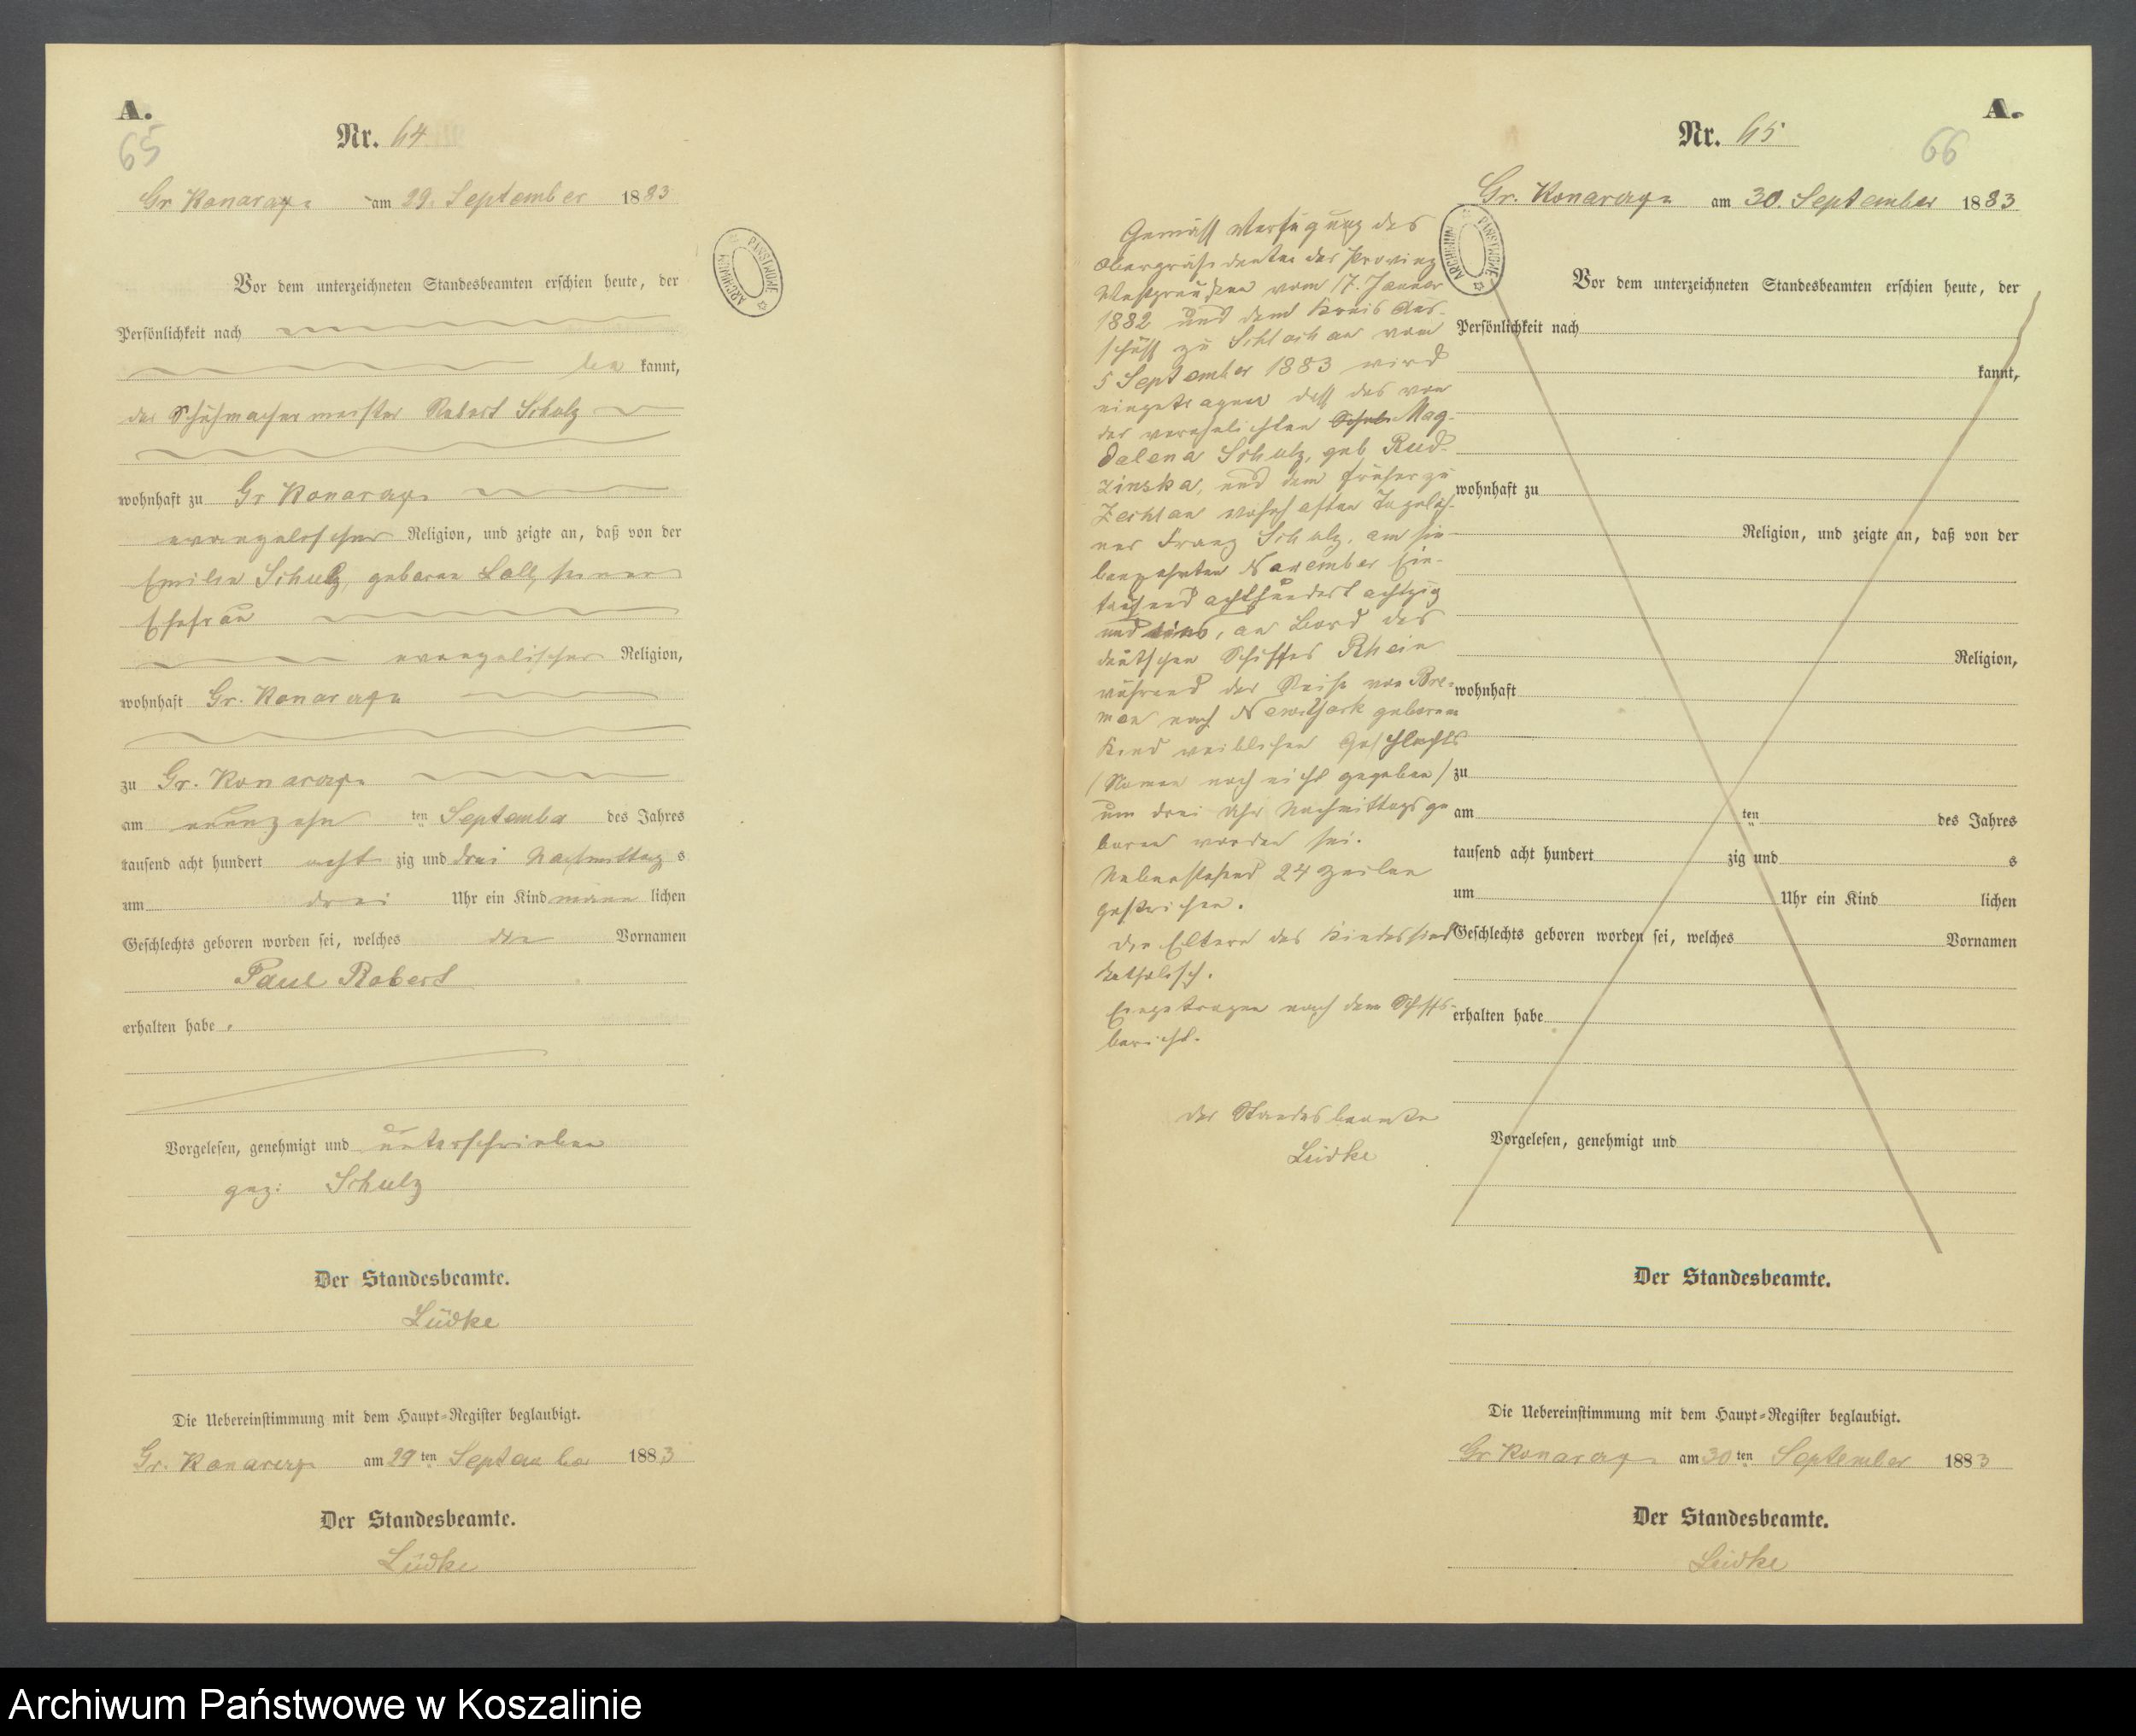 A.
65
Nr. 64
Gr Konarzyn am 29. September 1883
Vor dem unterzeichneten Standesbeamten erschien heute, der
Persönlichkeit nach
be kannt,
der Schuhmachermeister Robert Schulz
wohnhaft zu Gr Konarzyn
evangelischer Religion, und zeigte an, daß von der
Emilie Schulz, geborene seiner
Ehefrau
evangelischer Religion,
wohnhaft Gr. Konarzyn
zu Gr. Konarzyn
am neunzehn ten September des Jahres
tausend acht hundert acht zig und drei Nachmittag s
um drei Uhr ein Kind männ lichen
Geschlechts geboren worden sei, welches die Vornamen
Paul Robert
erhalten habe.
Vorgelesen, genehmigt und unterschrieben
gez: Schulz
Der Standesbeamte.
Lüdke
Die Uebereinstimmung mit dem Haupt-Register beglaubigt.
Gr. Konarzyn am 29 ten September 1883
Der Standesbeamte.
Lüdke
ARCHIWUM PAŃSTWOWE
A.
Nr. 65
66
Gr. Konarzyn am 30. September 1883
Gemäß Verfügung des
Oberpräsidenten der Provinz
Westpreußen vom 17. Januar
1882 und dem Kreis Aus-
schuß zu Schlochau vom
5 September 1883 wird
eingetragen daß das von
der verehelichten Schul Mag-
dalena Schulz, geb Rud-
zinska, und dem früher zu
Zechlau wohnhaften Tagelöh-
ner Franz Schulz, am sie-
benzehnten November Ein-
tausend achthundert achtzig
und eins, an Bord des
deutschen Schiffes Rhein
während der Reise von Bre-
men nach New-York geborene
Kind weiblichen Geschlechts
/Namen noch nicht gegeben/
um drei Uhr Nachmittags ge
boren worden sei.
Nebenstehend 24 Zeilen
gestrichen.
Die Eltern des Kindes sind
katholisch.
Eingetragen nach dem Schiffs-
bericht.
Der Standesbeamte
Lüdke
ARCHIWUM PAŃSTWOWE
Vor dem unterzeichneten Standesbeamten erschien heute, der
Persönlichkeit nach
kannt,
wohnhaft zu
Religion, und zeigte an, daß von der
Religion,
wohnhaft
zu
am ten des Jahres
tausend acht hundert zig und s
um Uhr ein Kind lichen
Geschlechts geboren worden sei, welches Vornamen
erhalten habe
Vorgelesen, genehmigt und
Der Standesbeamte.
Die Uebereinstimmung mit dem Haupt-Register beglaubigt.
Gr Konarzyn am 30 ten September 1883
Der Standesbeamte.
Lüdke
Archiwum Państwowe w Koszalinie